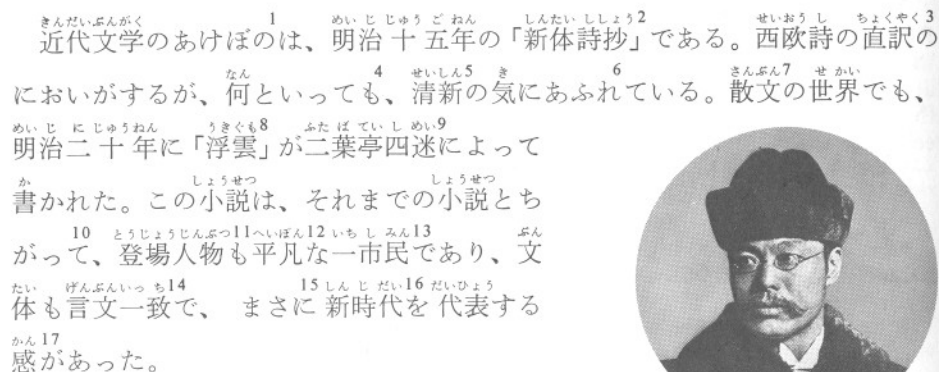 近代文学のあけぼのは、明治十五年の「新体詩抄」である。西欧詩の直訳の
においがするが、何といっても、清新の気にあふれている。散文の世界でも、
明治二十年に「浮雲」が二葉亭四迷によって
書かれた。この小説は、それまでの小説とち
がって、登場人物も平凡な一市民であり、文
体も言文一致で、まさに新時代を代表する
感があった。